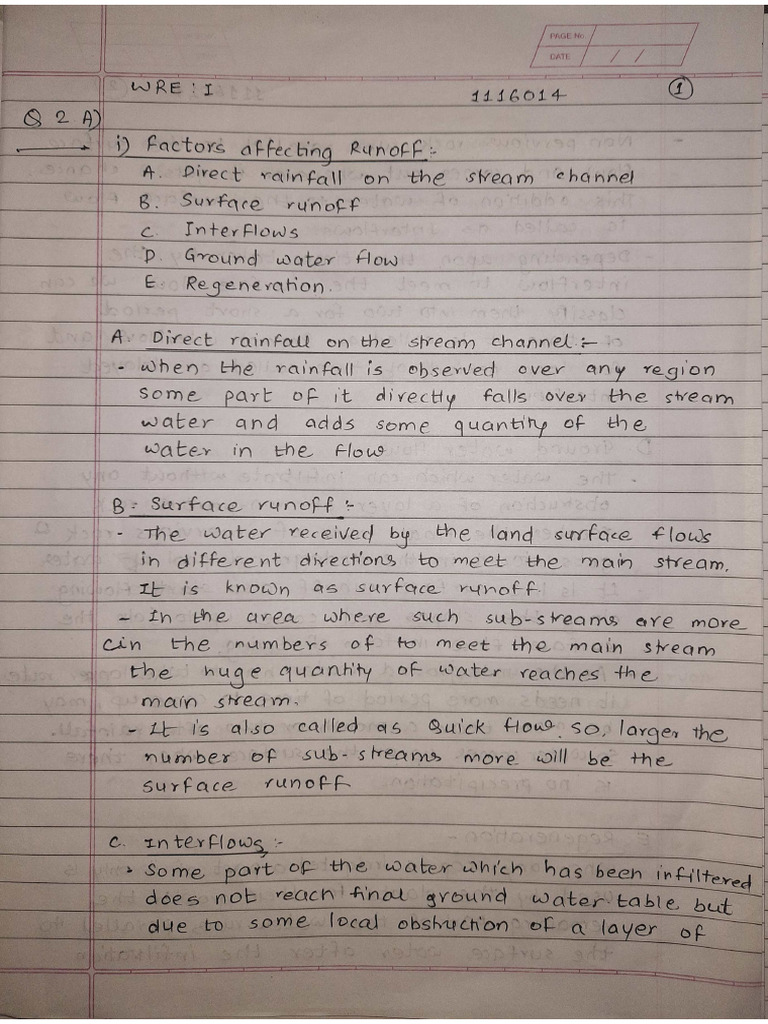 PAGE No.
DATE / /
WRE : I 1116014 1
Q 2 A)
i) Factors affecting Runoff :-
A. Direct rainfall on the stream channel
B. Surface runoff
C. Interflows
D. Ground water flow
E. Regeneration.
A. Direct rainfall on the stream channel :-
- When the rainfall is observed over any region
some part of it directly falls over the stream
water and adds some quantity of the
water in the flow
B. Surface runoff :-
- The water received by the land surface flows
in different directions to meet the main stream.
It is known as surface runoff.
- In the area where such sub-streams are more
cin the numbers of to meet the main stream
the huge quantity of water reaches the
main stream.
- It is also called as Quick flow. So, larger the
number of sub-streams more will be the
surface runoff
C. Interflows :-
- Some part of the water which has been infiltered
does not reach final ground water table but
due to some local obstruction of a layer of